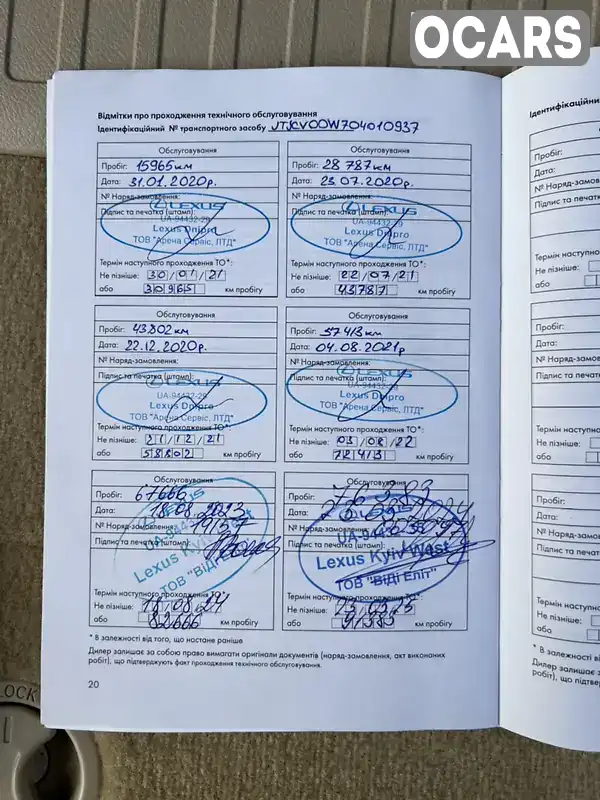 OCARS
Відмітки про проходження технічного обслуговування
Ідентифікаційний № транспортного засобу JTJCV00W704010937
Обслуговування
Пробіг: 15965 км
Дата: 31.01.2020р.
№ Наряд-замовлення:
Підпис та печатка (штамп):
LEXUS
UA-94432-29
Lexus Dnipro
ТОВ "Арена Сервіс, ЛТД"
Термін наступного проходження ТО*:
Не пізніше: 30/01/21
або 30965 км пробігу
Обслуговування
Пробіг: 28 787 км
Дата: 23.07.2020р.
№ Наряд-замовлення:
Підпис та печатка (штамп):
LEXUS
UA-94432-29
Lexus Dnipro
ТОВ "Арена Сервіс, ЛТД"
Термін наступного проходження ТО*:
Не пізніше: 22/07/21
або 43787 км пробігу
Обслуговування
Пробіг: 43802 км
Дата: 22.12.2020р.
№ Наряд-замовлення:
Підпис та печатка (штамп):
LEXUS
UA-94432-29
Lexus Dnipro
ТОВ "Арена Сервіс, ЛТД"
Термін наступного проходження ТО*:
Не пізніше: 21/12/21
або 58802 км пробігу
Обслуговування
Пробіг: 57413 км
Дата: 04.08.2021р
№ Наряд-замовлення:
Підпис та печатка (штамп):
LEXUS
UA-94432-29
Lexus Dnipro
ТОВ "Арена Сервіс, ЛТД"
Термін наступного проходження ТО*:
Не пізніше: 03/08/22
або 72413 км пробігу
Обслуговування
Пробіг: 67666
Дата: 18.08.2023
№ Наряд-замовлення:
Підпис та печатка (штамп):
Lexus Kyiv West
ТОВ "ВіДі
Термін наступного проходження ТО*:
Не пізніше: 18/08/24
або 82666 км пробігу
Обслуговування
Пробіг: 76 383
Дата:
№ Наряд-замовлення:
Підпис та печатка (штамп):
Lexus Kyiv West
ТОВ "ВіДі Еліт"
Термін наступного проходження ТО*:
Не пізніше:
або 91383 км пробігу
* В залежності від того, що настане раніше
Дилер залишає за собою право вимагати оригінали документів (наряд-замовлення, акт виконаних
робіт), що підтверджують факт проходження технічного обслуговування.
20
LOCK
Ідентифікаційний
Пробіг:
Дата:
№ Наряд-замовл
Підпис та печатк
Термін наступно
Не пізніше:
або
Пробіг:
Дата:
№ Наряд-замо
Підпис та печа
Термін наступн
Не пізніше:
або
Пробіг:
Дата:
№ Наряд-зам
Підпис та печ
Термін наступ
Не пізніше:
або
* В залежності ві
Дилер залишає з
робіт), що підтвер